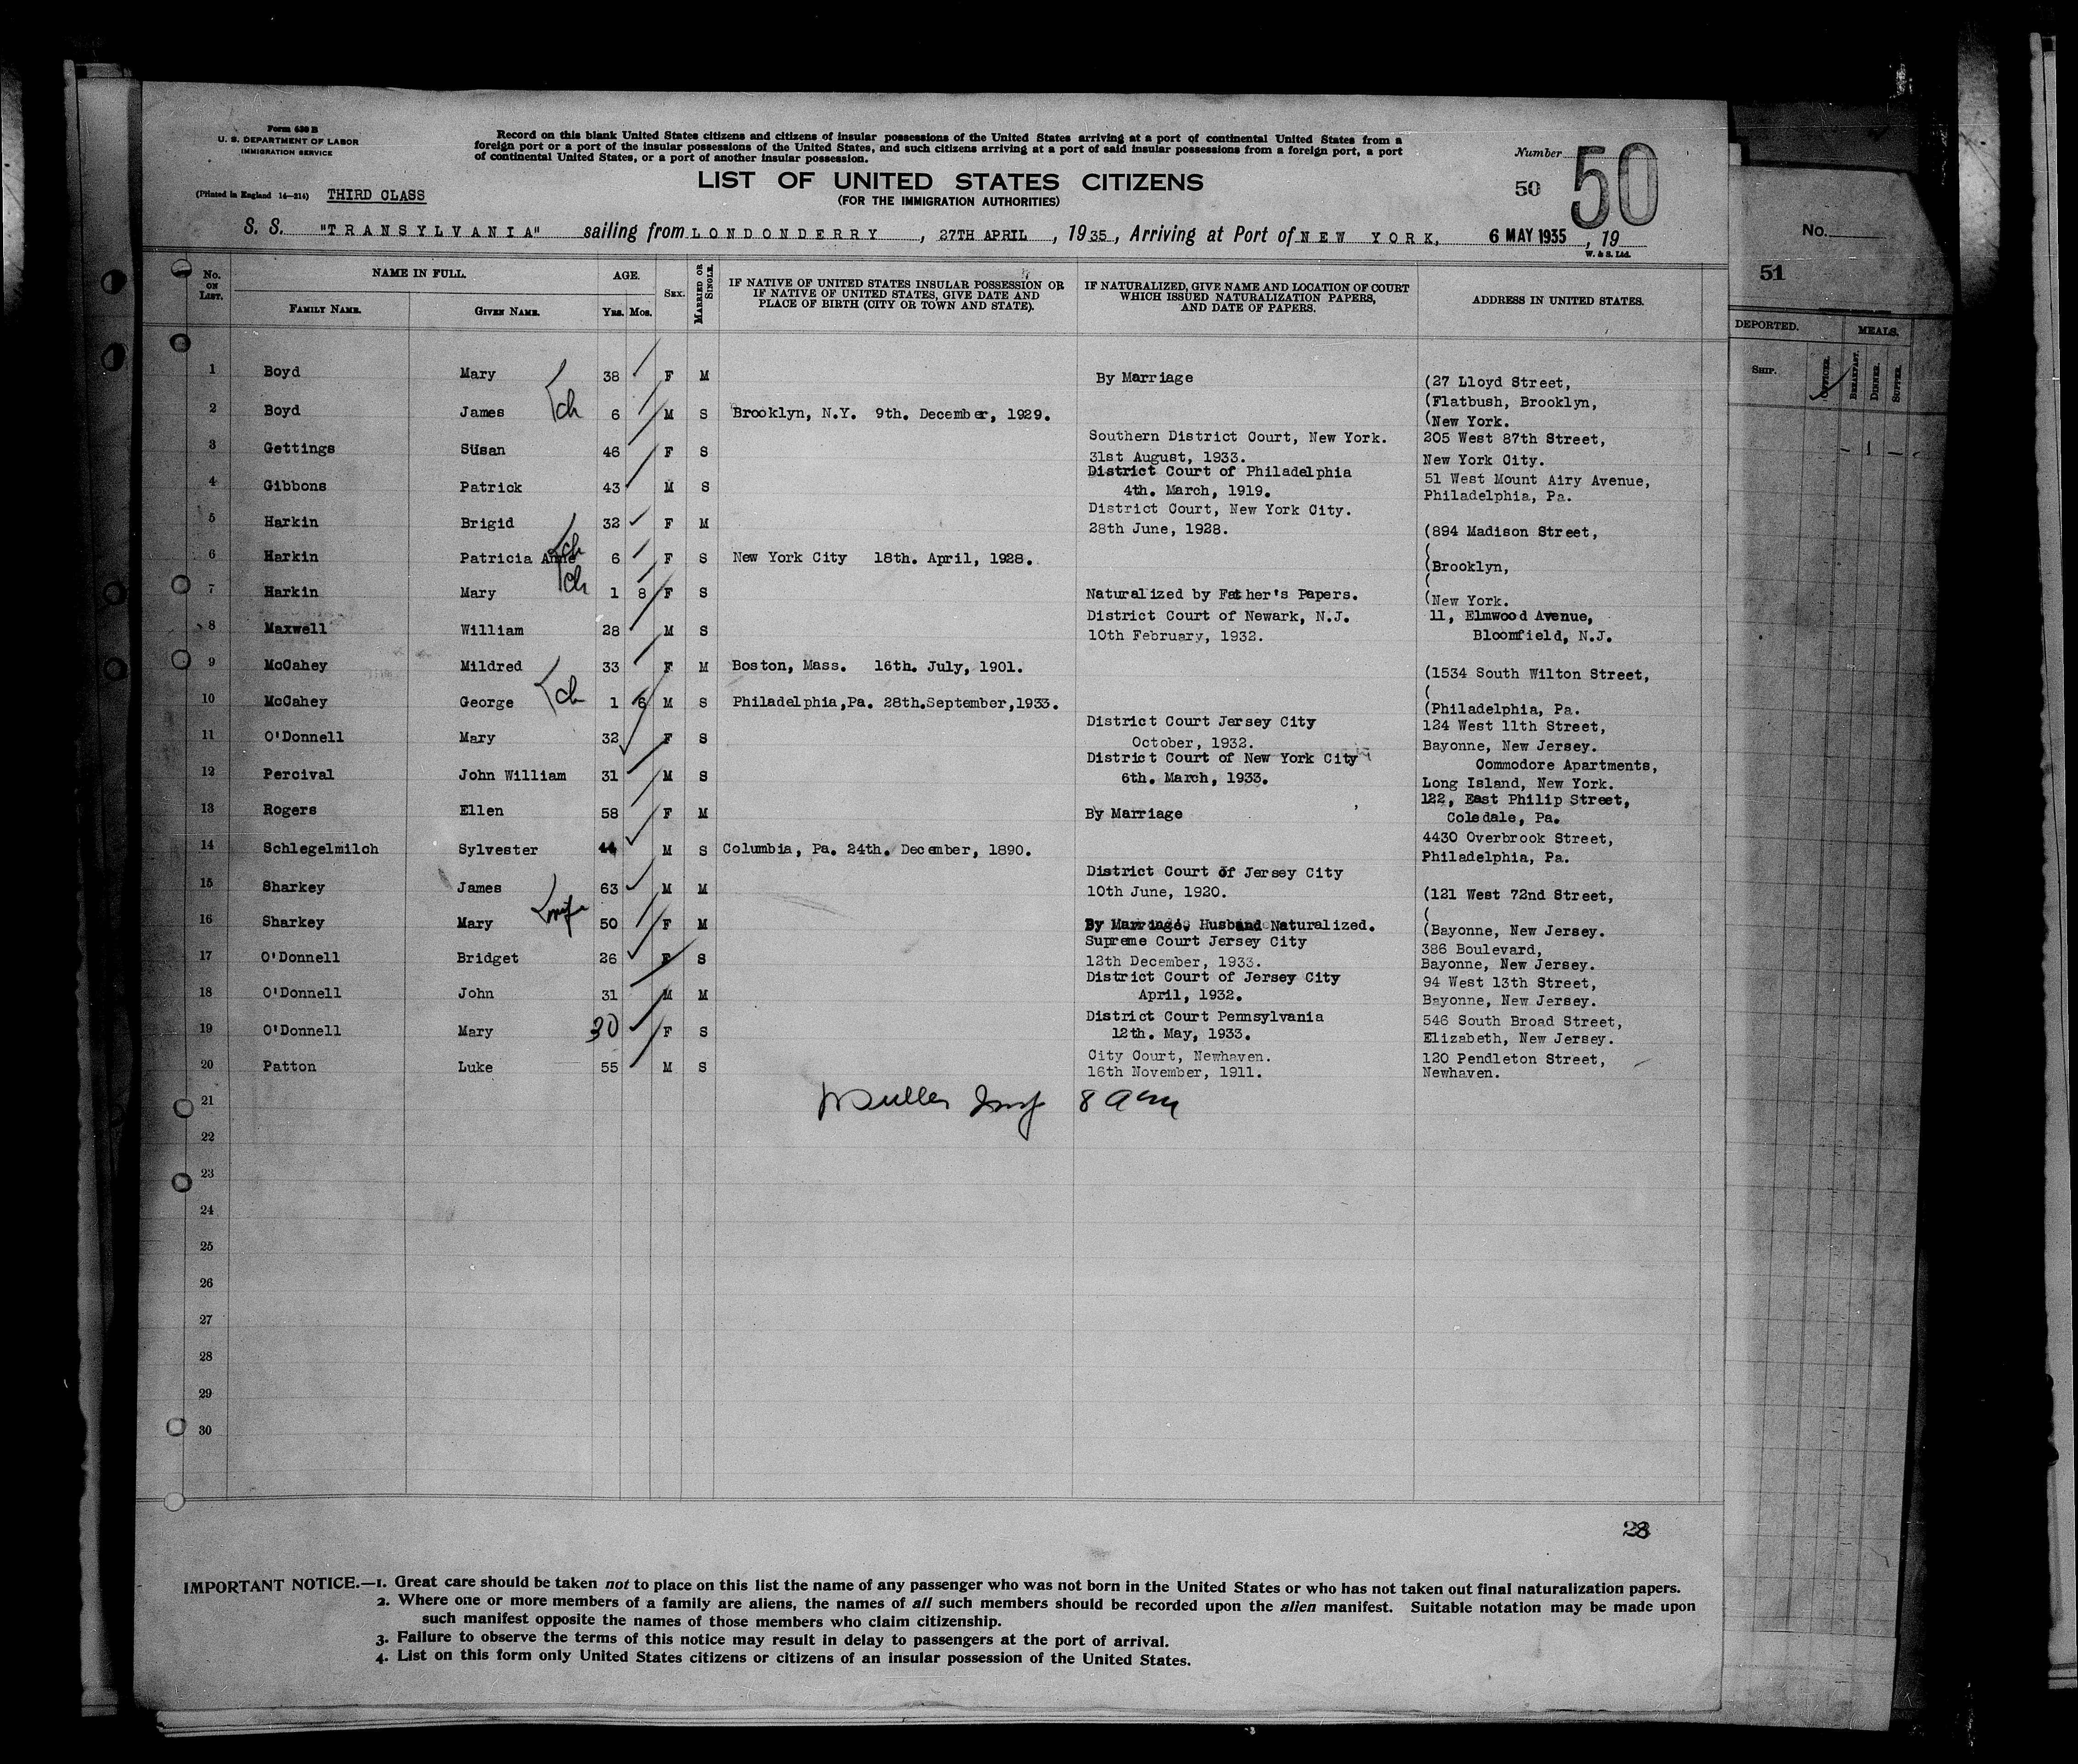 Form 630 B
U. S. DEPARTMENT OF LABOR
IMMIGRATION SERVICE
Record on this blank United States citizens and citizens of insular possessions of the United States arriving at a port of continental United States from a
foreign port or a port of the insular possessions of the United States, and such citizens arriving at a port of said insular possessions from a foreign port, a port
of continental United States, or a port of another insular possession.
Number 50
50
(Printed in England 14—214) THIRD CLASS
LIST OF UNITED STATES CITIZENS
(FOR THE IMMIGRATION AUTHORITIES)
S. S. "TRANSYLVANIA" sailing from LONDONDERRY, 27TH APRIL, 1935, Arriving at Port of NEW YORK. 6 MAY 1935, 19
W. & S. Ltd.
No. ON LIST. NAME IN FULL. AGE. SEX. MARRIED OR SINGLE. IF NATIVE OF UNITED STATES INSULAR POSSESSION OR IF NATIVE OF UNITED STATES, GIVE DATE AND PLACE OF BIRTH (CITY OR TOWN AND STATE). IF NATURALIZED, GIVE NAME AND LOCATION OF COURT WHICH ISSUED NATURALIZATION PAPERS, AND DATE OF PAPERS. ADDRESS IN UNITED STATES.
FAMILY NAME. GIVEN NAME. YRS. MOS.
1 Boyd Mary 38 F M By Marriage (27 Lloyd Street,
(Flatbush, Brooklyn,
2 Boyd James ch 6 M S Brooklyn, N.Y. 9th. December, 1929. (New York.
3 Gettings Susan 46 F S Southern District Court, New York. 205 West 87th Street,
31st August, 1933. New York City.
4 Gibbons Patrick 43 M S District Court of Philadelphia 51 West Mount Airy Avenue,
4th. March, 1919. Philadelphia, Pa.
5 Harkin Brigid 32 F M District Court, New York City.
28th June, 1928. (894 Madison Street,
(
6 Harkin Patricia Anne ch 6 F S New York City 18th. April, 1928. (Brooklyn,
(
7 Harkin Mary ch 1 8 F S Naturalized by Father's Papers. (New York.
8 Maxwell William 28 M S District Court of Newark, N.J. 11, Elmwood Avenue,
10th February, 1932. Bloomfield, N.J.
9 McCahey Mildred 33 F M Boston, Mass. 16th. July, 1901. (1534 South Wilton Street,
(
10 McCahey George ch 1 6 M S Philadelphia,Pa. 28th.September,1933. (Philadelphia, Pa.
11 O'Donnell Mary 32 F S District Court Jersey City 124 West 11th Street,
October, 1932. Bayonne, New Jersey.
12 Percival John William 31 M S District Court of New York City Commodore Apartments,
6th. March, 1933. Long Island, New York.
13 Rogers Ellen 58 F M By Marriage 122, East Philip Street,
Coledale, Pa.
14 Schlegelmilch Sylvester 44 M S Columbia, Pa. 24th. December, 1890. 4430 Overbrook Street,
Philadelphia, Pa.
15 Sharkey James 63 M M District Court of Jersey City
10th June, 1920. (121 West 72nd Street,
(
16 Sharkey Mary wife 50 F M By Marriage, Husband Naturalized. (Bayonne, New Jersey.
17 O'Donnell Bridget 26 F S Supreme Court Jersey City 386 Boulevard,
12th December, 1933. Bayonne, New Jersey.
18 O'Donnell John 31 M M District Court of Jersey City 94 West 13th Street,
April, 1932. Bayonne, New Jersey.
19 O'Donnell Mary 30 F S District Court Pennsylvania 546 South Broad Street,
12th. May, 1933. Elizabeth, New Jersey.
20 Patton Luke 55 M S City Court, Newhaven. 120 Pendleton Street,
16th November, 1911. Newhaven.
21
22
23
24
25
26
27
28
29
30
28
IMPORTANT NOTICE.—1. Great care should be taken not to place on this list the name of any passenger who was not born in the United States or who has not taken out final naturalization papers.
2. Where one or more members of a family are aliens, the names of all such members should be recorded upon the alien manifest. Suitable notation may be made upon
such manifest opposite the names of those members who claim citizenship.
3. Failure to observe the terms of this notice may result in delay to passengers at the port of arrival.
4. List on this form only United States citizens or citizens of an insular possession of the United States.
No.
51
DEPORTED. MEALS.
SHIP. OFFICER. BREAKFAST. DINNER. SUPPER.